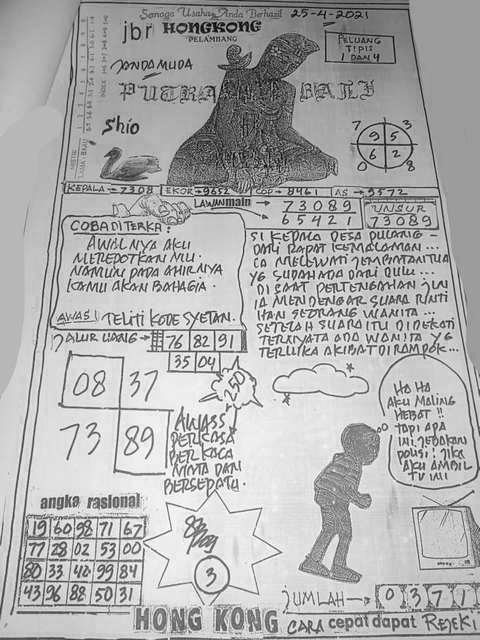 Semoga Usaha Anda Berhasil 25-4-2021
jbr HONGKONG
PELAMBANG
JANDA MUDA
PELUANG
TIPIS
1 DAN 4
PUTRA BALI
Shio
7 3
9 5
6 2
0 8
KEPALA → 7308 EKOR → 9652 COP → 8461 AS → 9572
LAWAN main → 73089
65421
UNSUR
73089
COBA DITERKA:
AWALNYA AKU
MEREPOTKAN MU.
NAMUN PADA AHIRNYA
KAMU AKAN BAHAGIA.
AWAS! TELITI KODE SYETAN.
SI KEPALA DESA PULANG
DARI RAPAT KEMALAMAN...
IA MELEWATI JEMBATAN TUA
YG SUDAH ADA DARI DULU...
DI SAAT PERTENGAHAN JLN
IA MENDENGAR SUARA RINTI
HAN SEORANG WANITA...
SETELAH SUARA ITU DI DEKATI
TERNYATA ADA WANITA YG
TERLUKA AKIBAT DI RAMPOK...
JALUR UANG → 76 82 91
35 04
250
08 37
73 89
AWASS
PERKASA
BERKACA
MATA DAN
BERSEPATU.
HA HA
AKU MALING
HEBAT !!
TAPI APA
INI JEBAKAN
POLISI? JIKA
AKU AMBIL
TV INI
angka rasional
19 60 98 71 67
77 28 02 53 00
80 33 40 99 84
43 96 88 50 31
3
JUMLAH → 0 3 7 1
HONG KONG
CARA cepat dapat REJEKI